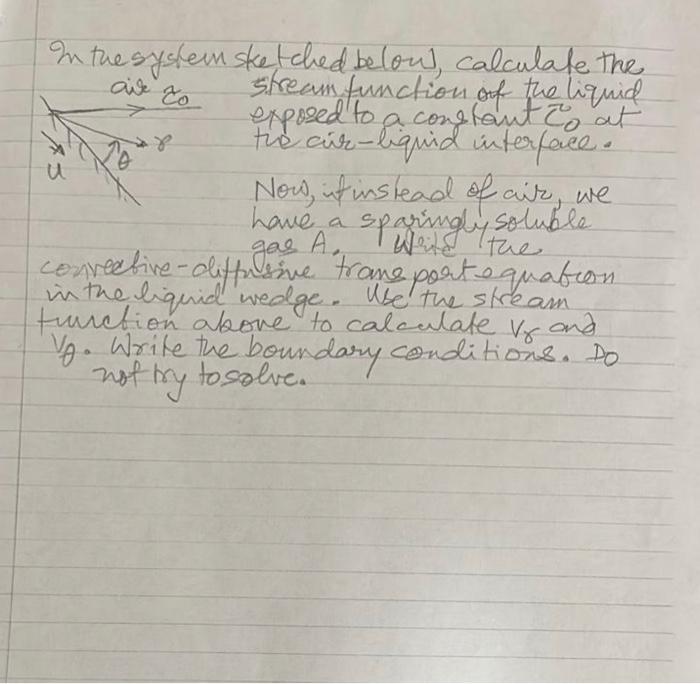 In the system sketched below, calculate the
air τ₀ stream function of the liquid
exposed to a constant τ₀ at
the air-liquid interface.
r
θ
u
Now, if instead of air, we
have a sparingly soluble
gas A. Write the
convective-diffusive transport equation
in the liquid wedge. Use the stream
function above to calculate vᵣ and
v_θ. Write the boundary conditions. Do
not try to solve.